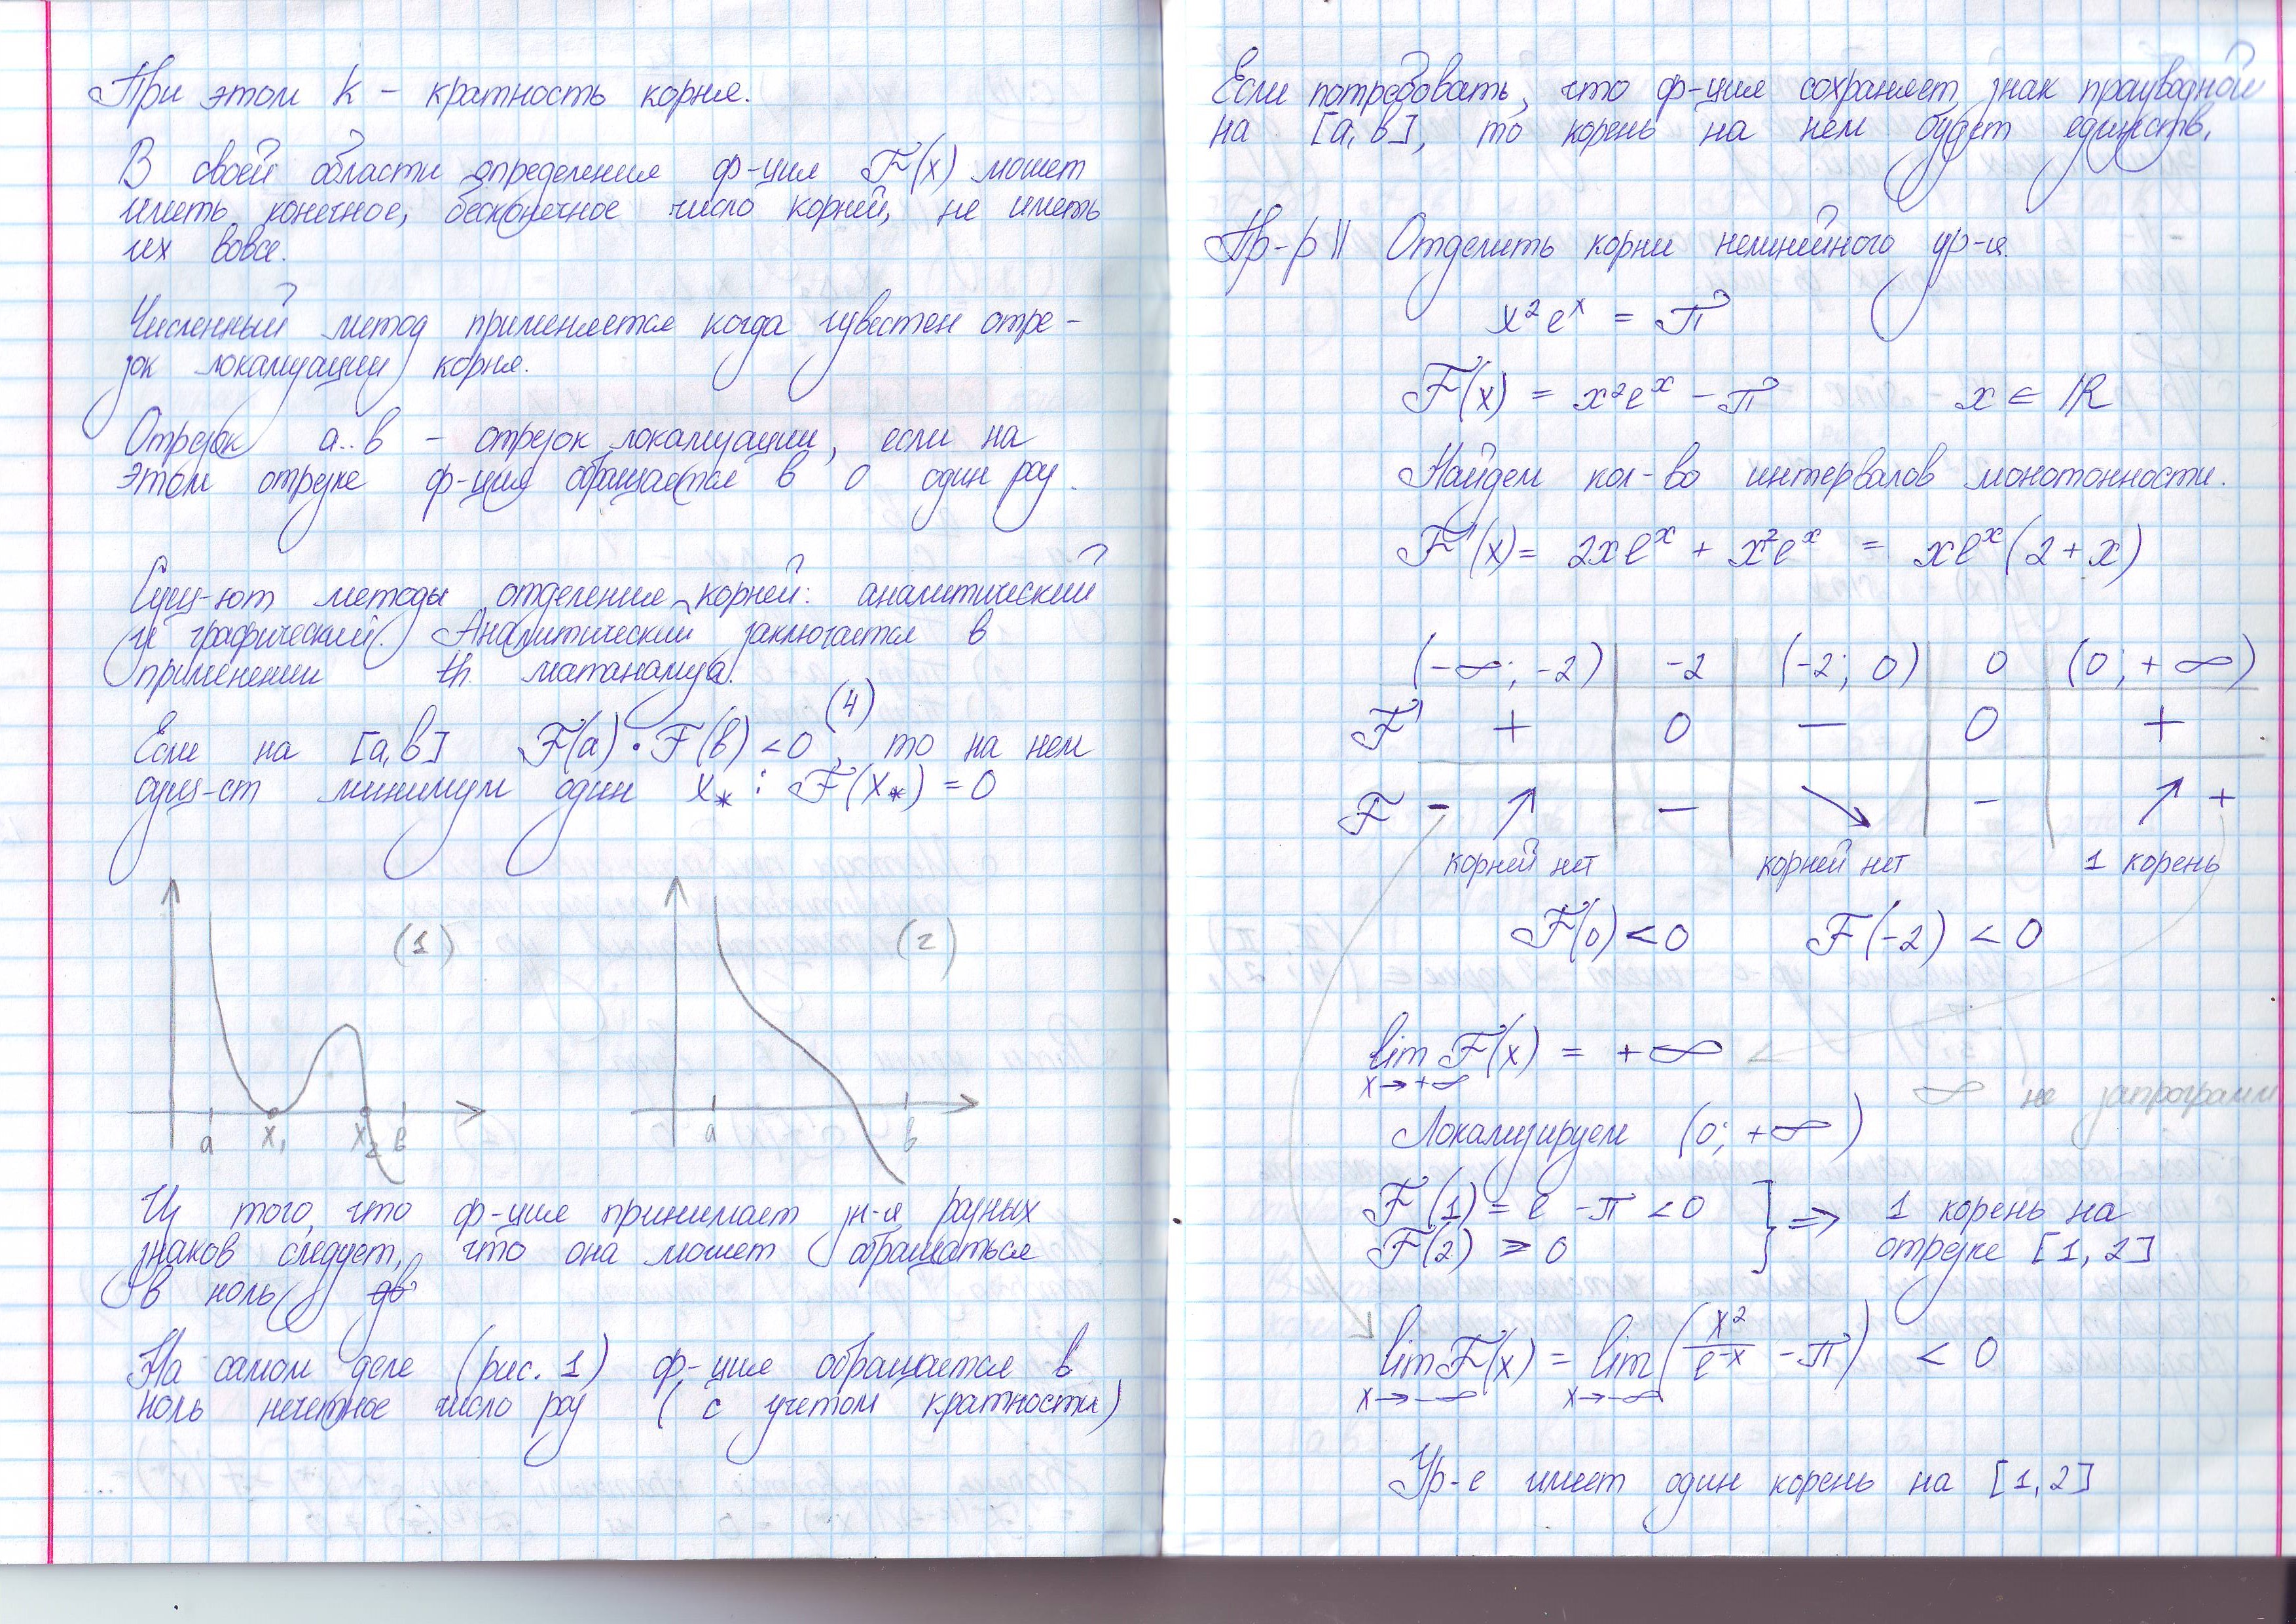 При этом k - кратность корня.
В своей области определения ф-ция F(x) может
иметь конечное, бесконечное число корней, не иметь
их вовсе.
Численный метод применяется когда известен отре-
зок локализации корня.
Отрезок a..b - отрезок локализации, если на
этом отрезке ф-ция обращается в 0 один раз.
Сущ-ют методы отделения корней: аналитический
и графический. Аналитический заключается в
применении th. матанализа.
(4)
Если на [a,b] F(a)·F(b)<0, то на нем
сущ-ст минимум один x* : F(x*) = 0
(1) (2)
a x₁ x₂ b a b
Из того, что ф-ция принимает зн-я разных
знаков следует, что она может обращаться
в ноль
На самом деле (рис. 1) ф-ция обращается в
ноль нечетное число раз (с учетом кратности)
Если потребовать, что ф-ция сохраняет знак производной
на [a,b], то корень на нем будет единств.
Пр-р || Отделить корни нелинейного ур-я.
x²eˣ = π
F(x) = x²eˣ - π x ∈ ℝ
Найдем кол-во интервалов монотонности.
F'(x) = 2xeˣ + x²eˣ = xeˣ(2+x)
(-∞; -2) -2 (-2; 0) 0 (0; +∞)
F' + 0 - 0 +
F - ↗ - ↘ - ↗ +
корней нет корней нет 1 корень
F(0)<0 F(-2) < 0
lim F(x) = +∞
x→+∞
∞ не запрограмм
Локализируем (0; +∞)
F(1) = e - π < 0 } ⇒ 1 корень на
F(2) > 0 отрезке [1, 2]
lim F(x) = lim (x²/e⁻ˣ - π) < 0
x→-∞ x→-∞
Ур-е имеет один корень на [1,2]